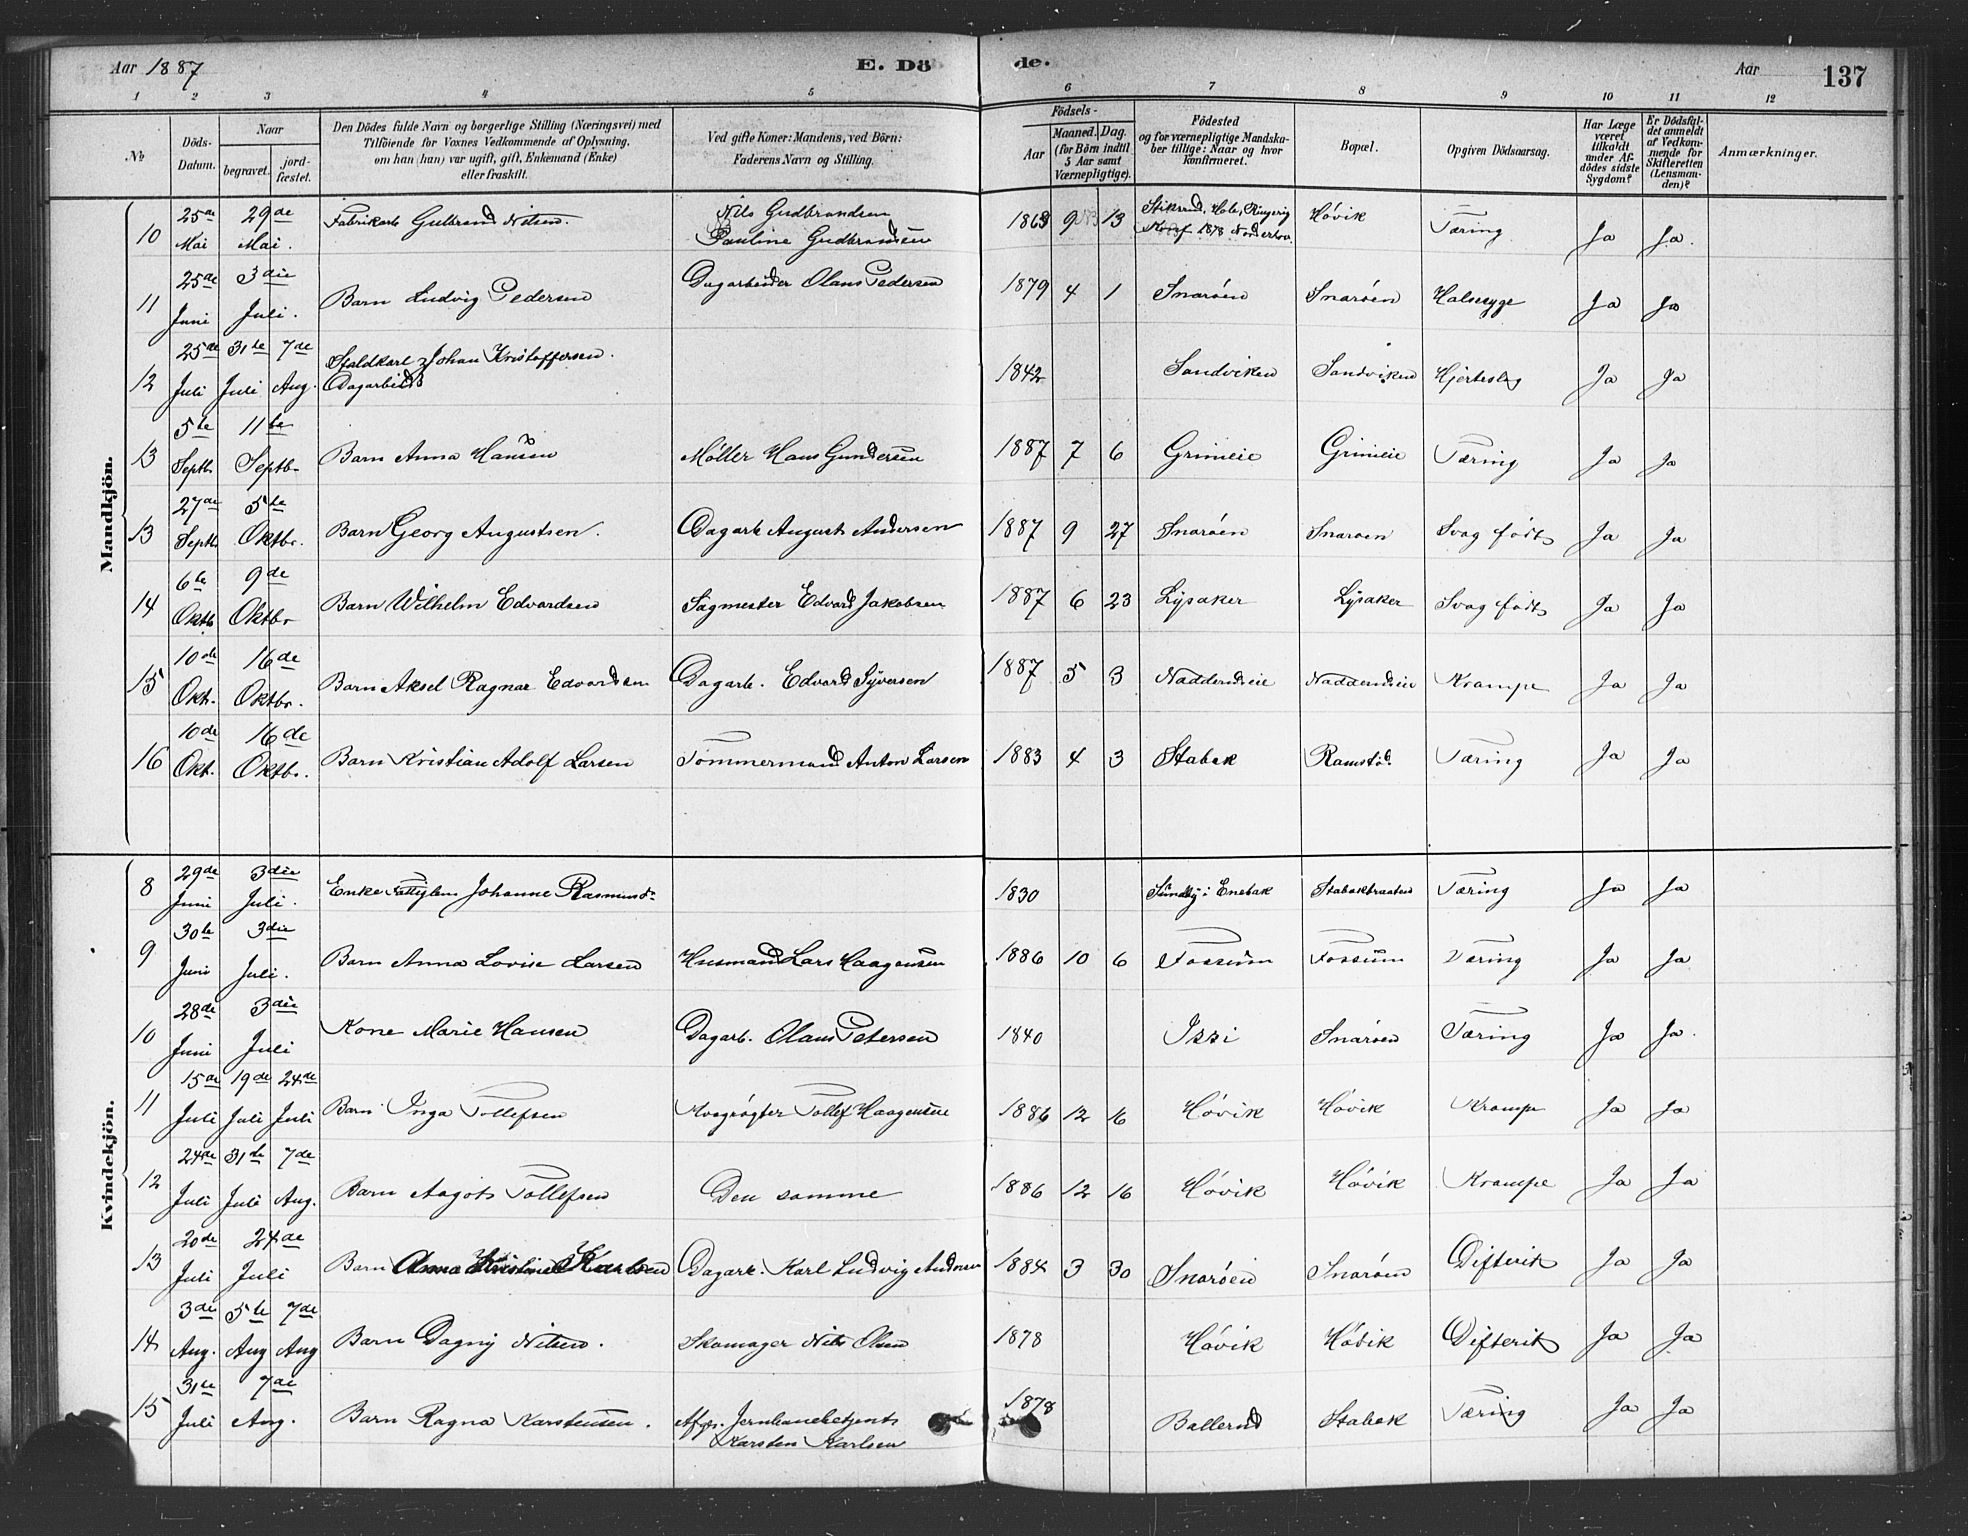 Aar 1887
E. Dö
de.
Aar
137
1 2 3 4 5 6 7 8 9 10 11 12
№
Döds-Datum.
Naar
begravet.
jord-fæstet.
Den Dödes fulde Navn og borgerlige Stilling (Næringsvei) med
Tilföiende for Voxnes Vedkommende af Oplysning,
om han (hun) var ugift, gift, Enkemand (Enke)
eller fraskilt.
Ved gifte Koner: Mandens, ved Börn:
Faderens Navn og Stilling.
Födsels-
Aar
Maaned. Dag.
(for Börn indtil
5 Aar samt
Værnepligtige).
Födested
og for værnepligtige Mandska-
ber tillige: Naar og hvor
konfirmeret.
Bopæl.
Opgiven Dödsaarsag.
Har Læge
været
tilkaldt
under Af-
dödes sidste
Sygdom?
Er Dödsfal-
det anmeldt
af Vedkom-
mende for
Skifteretten
(Lensman-
den)?
Anmærkninger.
Mandkjön.
10 25de Mai 29de Mai. Fabrikarb Gulbrand Nilsen. Nils Gudbrandsen Pauline Gudbrandsen 1863 9 13 Hole, Ringerig Konf 1878 Norderhov. Hövik Tæring Ja Ja.
11 25de Juni 3die Juli. Barn Ludvig Pedersen Dagarbeider Olaus Pedersen 1879 4 1 Snaröen Snaröen Halsesyge Ja Ja
12 25de Juli 31te Juli 7de Aug. Staldkarl Johan Kristoffersen. Dagarbeid 1842 Sandviken Sandviken Hjerteslag Ja Ja
13 5te Septb 11te Septbr Barn Anna Hansen Möller Hans Gundersen 1887 7 6 Grinieie Grinieie Tæring Ja Ja
13 27de Septb 5te Oktbr. Barn Georg Augustsen. Dagarb August Andersen 1887 9 27 Snaröen Snaröen Svag födt Ja Ja
14 6te Oktb 9de Oktbr Barn Wilhelm Edvardsen Sagmester Edvard Jakobsen 1887 6 23 Lysaker Lysaker Svag födt Ja Ja
15 10de Okt. 16de Oktbr. Barn Aksel Ragnar Edvardsen Dagarb. Edvard Syversen 1887 5 3 Nadderudeie Nadderudeie Krampe Ja Ja
16 10de Okt. 16de Oktbr. Barn Kristian Adolf Larsen Tömmermand Anton Larsen 1883 4 3 Stabæk Ramstad. Tæring Ja Ja
Kvindekjön.
8 29de Juni 3die Juli. Enke Fattiglem Johanne Rasmusd. 1830 Sundby i Enebak Stabækbraaten Tæring Ja Ja
9 30te Juni 3die Juli. Barn Anna Lovise Larsen Husmand Lars Haagensen 1886 10 6 Fossum Fossum Tæring Ja Ja
10 28de Juni 3die Juli Kone Marie Hansen Dagarb. Olaus Petersen 1840 Issi Snaröen Tæring Ja Ja.
11 15de Juli 19de Juli 24de Juli Barn Inga Tollefsen Tollef Haagensen 1886 12 16 Hövik Hövik Krampe Ja Ja
12 24de Juli 31te Juli 7de Aug. Barn Aagot Tollefsen Den samme 1886 12 16 Hövik Hövik Krampe Ja Ja
13 20de Juli 24de Juli Barn Anna Kristine Karlsen Dagarb. Karl Ludvig Andersen 1884 3 30 Snaröen Snaröen Difterit Ja Ja
14 3die Aug. 5te Aug 7de Aug Barn Dagny Nilsen. Skomager Nils Olsen 1878 Hövik Hövik Difterit Ja Ja
15 31te Juli 7de Aug. Barn Ragna Karstensen. Afg. Jernbanebetjent Karsten Karlsen 1878 Ballerud Stabæk Tæring Ja Ja